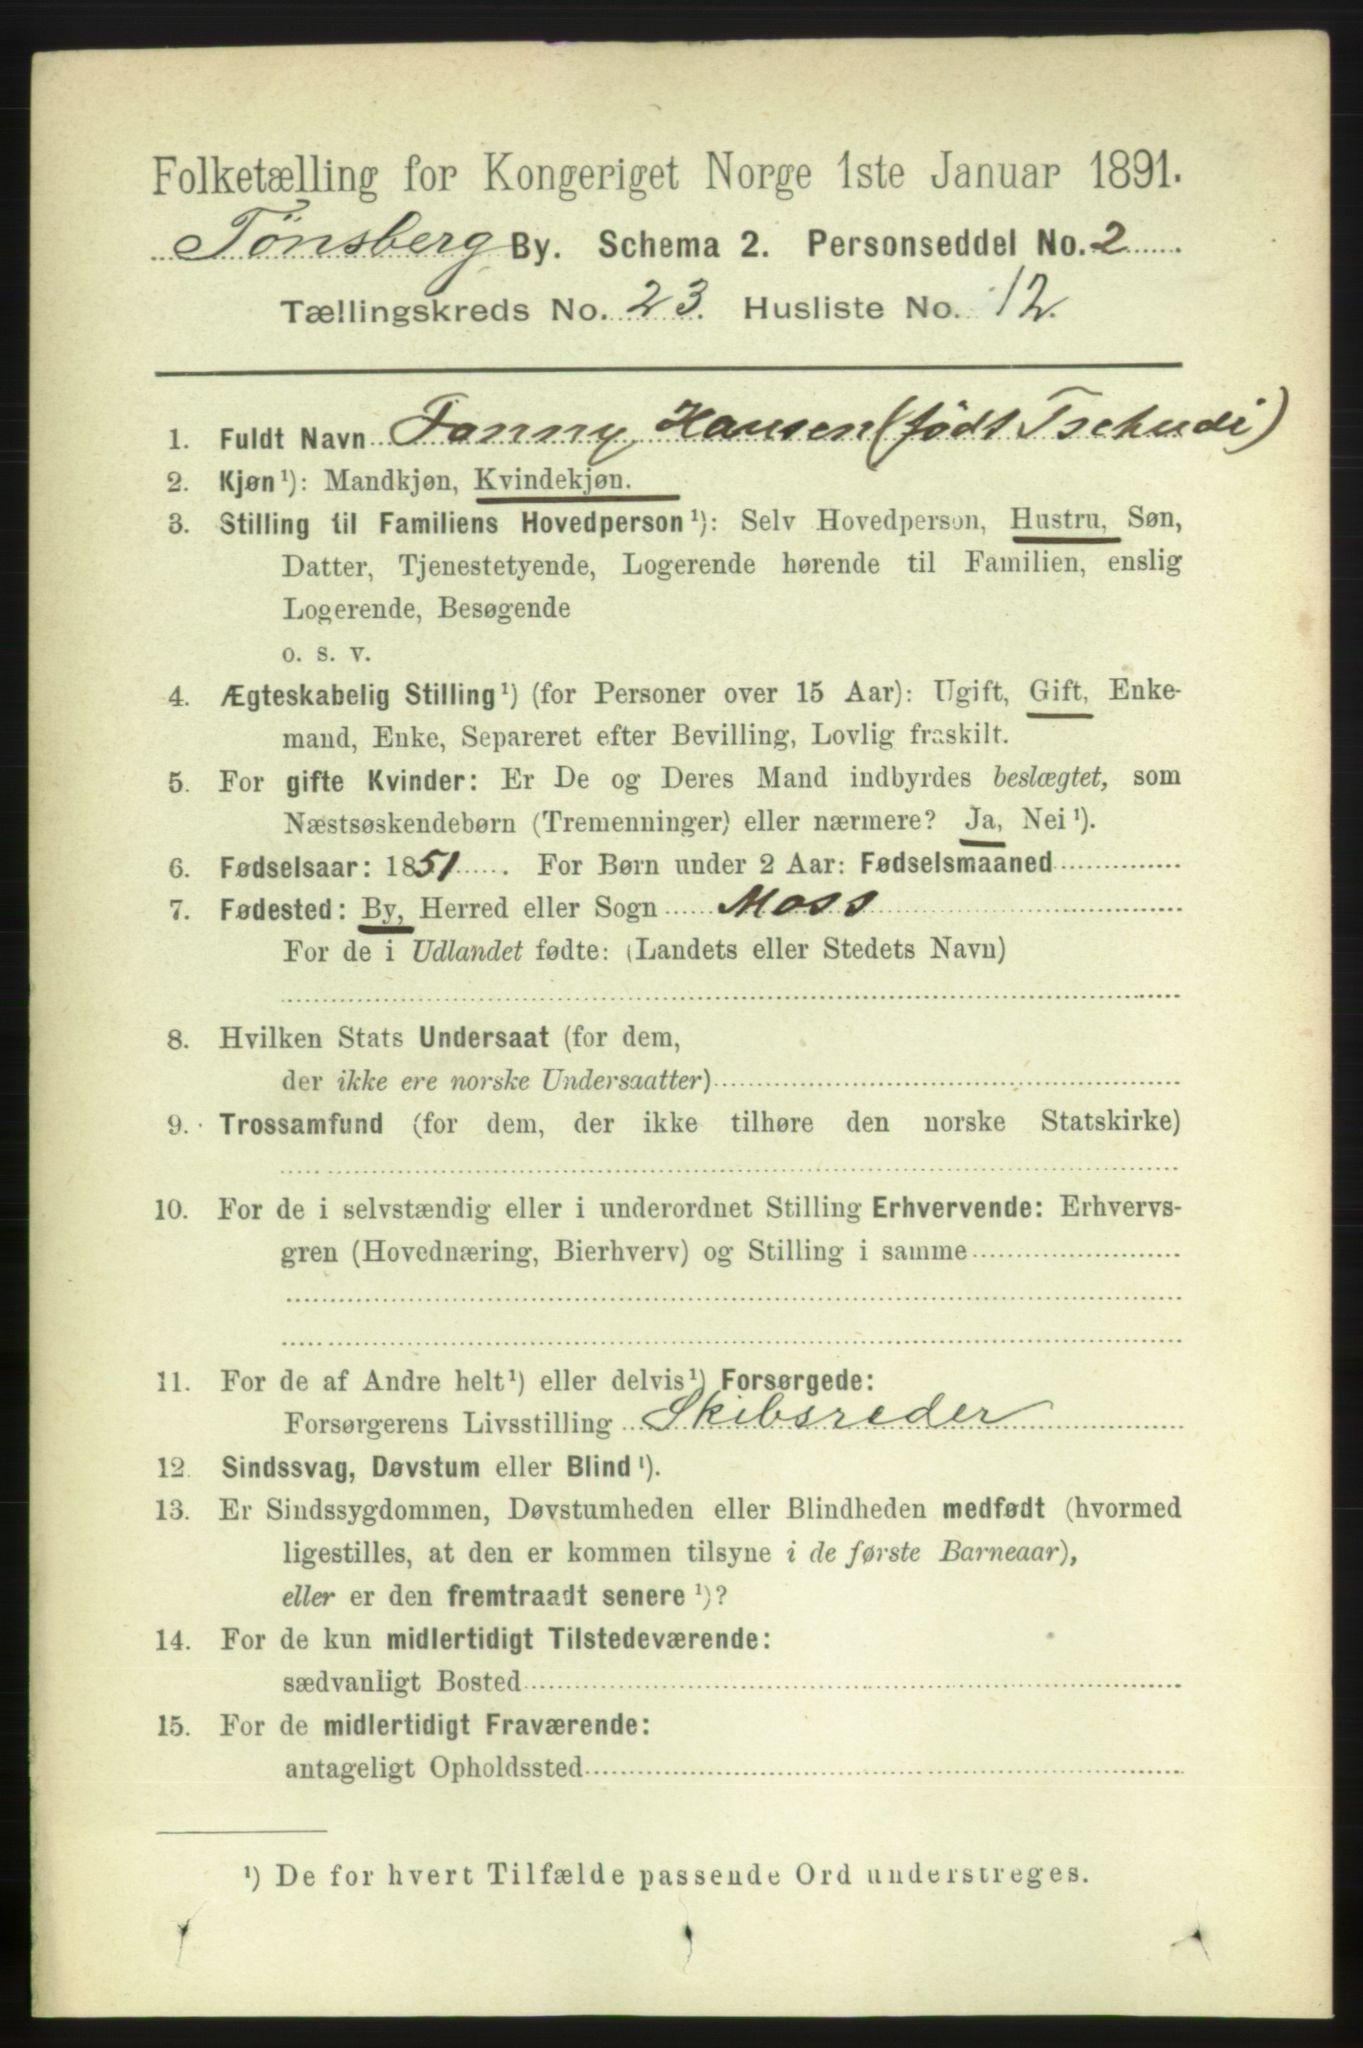 Folketælling for Kongeriget Norge 1ste Januar 1891.
Tønsberg By. Schema 2. Personseddel No. 2
Tællingskreds No. 23. Husliste No. 12.
1. Fuldt Navn Fanny Hansen (født Tschudi)
2. Kjøn¹): Mandkjøn, Kvindekjøn.
3. Stilling til Familiens Hovedperson¹): Selv Hovedperson, Hustru, Søn,
Datter, Tjenestetyende, Logerende hørende til Familien, enslig
Logerende, Besøgende
o. s. v.
4. Ægteskabelig Stilling¹) (for Personer over 15 Aar): Ugift, Gift, Enke-
mand, Enke, Separeret efter Bevilling, Lovlig fraskilt.
5. For gifte Kvinder: Er De og Deres Mand indbyrdes beslægtet, som
Næstsøskendebørn (Tremenninger) eller nærmere? Ja, Nei¹).
6. Fødselsaar: 1851. For Børn under 2 Aar: Fødselsmaaned
7. Fødested: By, Herred eller Sogn Moss
For de i Udlandet fødte: (Landets eller Stedets Navn)
8. Hvilken Stats Undersaat (for dem,
der ikke ere norske Undersaatter)
9. Trossamfund (for dem, der ikke tilhøre den norske Statskirke)
10. For de i selvstændig eller i underordnet Stilling Erhvervende: Erhvervs-
gren (Hovednæring, Bierhverv) og Stilling i samme
11. For de af Andre helt¹) eller delvis¹) Forsørgede:
Forsørgerens Livsstilling Skibsreder
12. Sindssvag, Døvstum eller Blind¹).
13. Er Sindssygdommen, Døvstumheden eller Blindheden medfødt (hvormed
ligestilles, at den er kommen tilsyne i de første Barneaar),
eller er den fremtraadt senere¹)?
14. For de kun midlertidigt Tilstedeværende:
sædvanligt Bosted
15. For de midlertidigt Fraværende:
antageligt Opholdssted
¹) De for hvert Tilfælde passende Ord understreges.